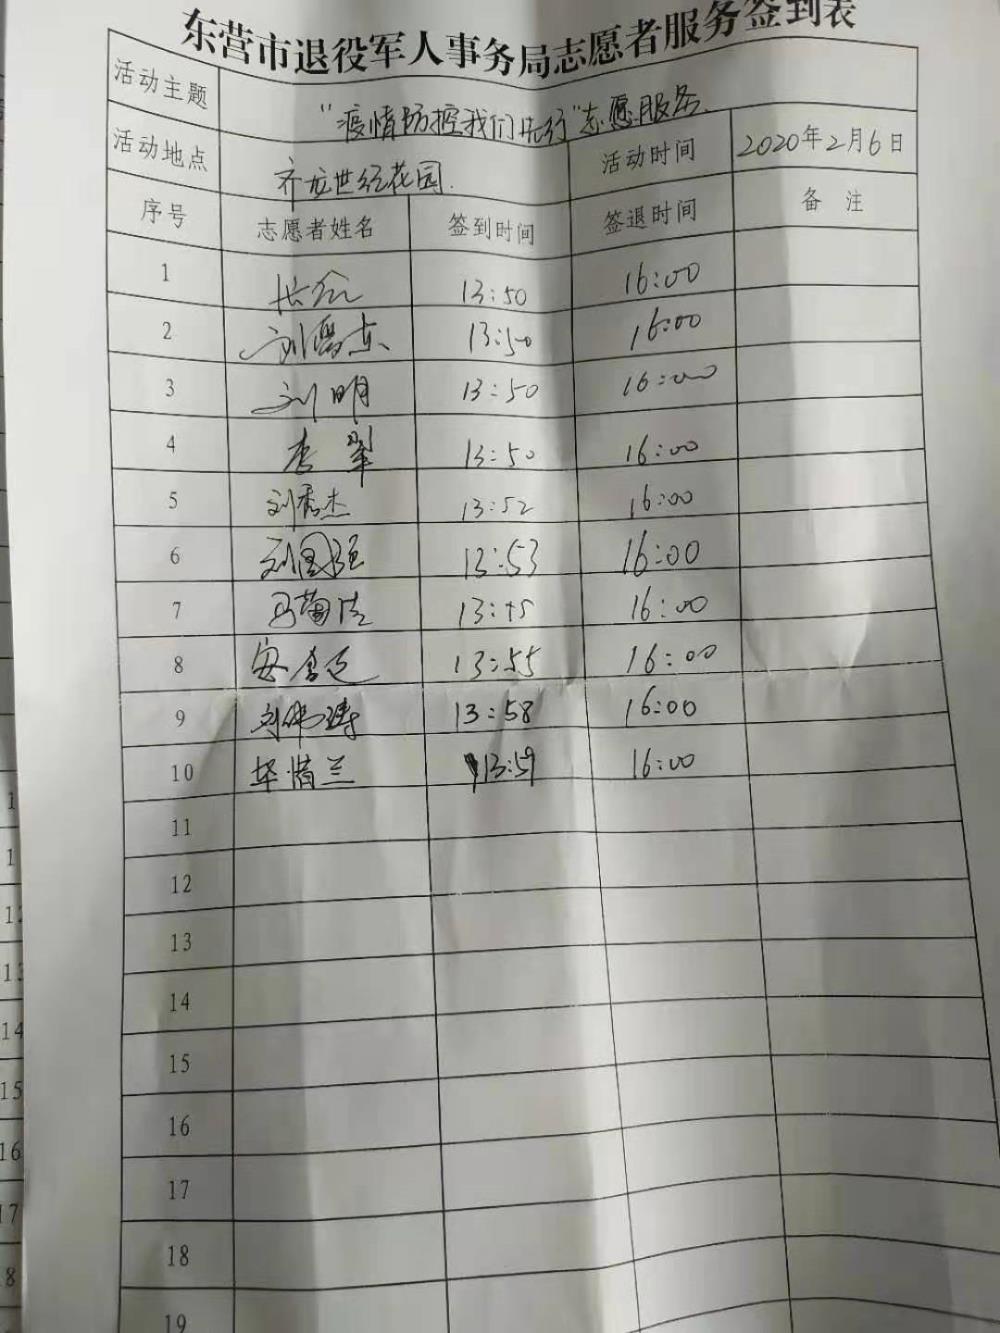 东营市退役军人事务局志愿者服务签到表
活动主题 “疫情防控我们先行”志愿服务
活动地点 齐龙世纪花园 活动时间 2020年2月6日
序号 志愿者姓名 签到时间 签退时间 备注
1 13:50 16:00
2 刘 13:50 16:00
3 刘明 13:50 16:00
4 李翠 13:50 16:00
5 刘秀杰 13:52 16:00
6 刘国强 13:53 16:00
7 16:00
8 13:55 16:00
9 刘伟涛 13:58 16:00
10 毕惜兰 13:59 16:00
11
12
13
14
15
16
17
18
19
1
1
12
13
14
15
16
17
18